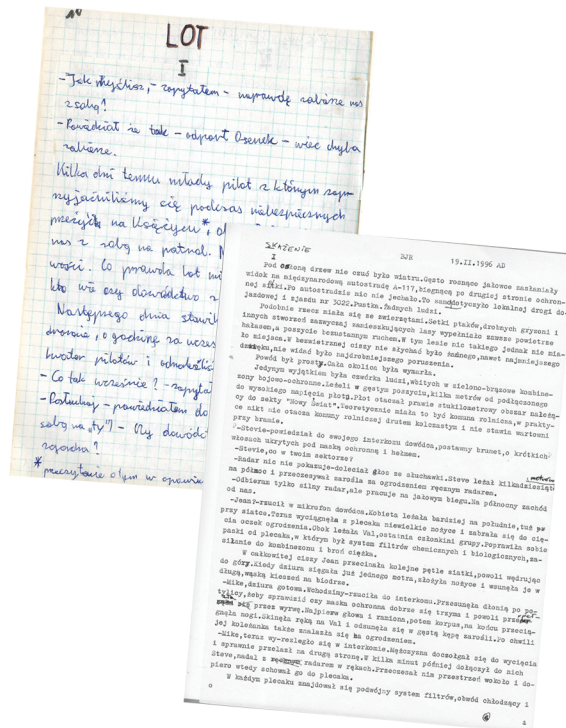 LOT
I
- Jak myślisz, - zapytałem - naprawdę zabierze nas
z sobą?
- Powiedział że tak - odparł Osenek - więc chyba
zabierze.
Kilka dni temu młody pilot z którym zaprzy-
jaźniliśmy się podczas niebezpiecznych
przeżyć na Księżycu*,
nas z sobą na patrol.
wości. Co prawda lot
kto wie czy dowództwo
Następnego dnia
o godzinę za
kwater pilotów i
- Co tak wcześnie? - zapytał
- Posłuchaj - powiedziałem do
sobą na „ty") - Czy
zgodna?
* przeczytacie o tym w opowia
SKAŻENIE
I
DJR
19.II.1996 AD
Pod osłoną drzew nie czuć było wiatru.Gęsto rosnące jałowce zasłaniały
widok na międzynarodową autostradę A-117,biegnącą po drugiej stronie ochron-
nej siatki.Po autostradzie nic nie jechało.To samo dotyczyło lokalnej drogi do-
jazdowej i zjazdu nr 3022.Pustka.Żadnych ludzi.
Podobnie rzecz miała się ze zwierzętami.Setki ptaków,drobnych gryzoni i
innych stworzeń zazwyczaj zamieszkujących lasy wypełniało zawsze powietrze
hałasem,a poszycie bezustannym ruchem.W tym lesie nic takiego jednak nie mia-
ło miejsca.W bezwietrznej ciszy nie słychać było żadnego,nawet najmniejszego
dźwięku,nie widać było najdrobniejszego poruszenia.
Powód był prosty.Cała okolica była wymarła.
Jedynym wyjątkiem była czwórka ludzi,wbitych w zielono-brązowe kombine-
zony bojowo-ochronne.Leżeli w gęstym poszyciu,kilka metrów od podłączonego
do wysokiego napięcia płotu.Płot otaczał prawie stukilometrowy obszar należą-
cy do sekty "Nowy Świat".Teoretycznie miała to być komuna rolnicza,w prakty-
ce nikt nie otacza komuny rolniczej drutem kolczastym i nie stawia wartowni
przy bramie.
-Stevie-powiedział do swojego interkomu dowódca,postawny brunet,o krótkich
włosach ukrytych pod maską ochronną i hełmem.
-Stevie,co w twoim sektorze?
-Radar nic nie pokazuje-doleciał głos ze słuchawki.Steve leżał kilkadziesiąt metrów
na północ i przeczesywał zarośla za ogrodzeniem ręcznym radarem.
-Odbieram tylko silny radar,ale pracuje na jałowym biegu.Na północny zachód
od nas.
-Jean?-rzucił w mikrofon dowódca.Kobieta leżała bardziej na południe,tuż
przy siatce.Teraz wyciągnęła z plecaka niewielkie nożyce i zabrała się do cię-
cia oczek ogrodzenia.Obok leżała Val,ostatnia członkini grupy.Poprawiła sobie
paski od plecaka,w którym był system filtrów chemicznych i biologicznych,za-
silanie do kombinezonu i broń ciężka.
W całkowitej ciszy Jean przecinała kolejne pętle siatki,powoli wędrując
do góry.Kiedy dziura sięgała już jednego metra,złożyła nożyce i wsunęła je w
długą,wąską kieszeń na biodrze.
-Mike,dziura gotowa.Wchodzimy-rzuciła do interkomu.Przesunęła dłonią po po-
tylicy,żeby sprawdzić czy maska ochronna dobrze się trzyma i powoli
się przez wyrwę.Najpierw głowa i ramiona,potem korpus,na końcu przecią-
gnęła nogi.Skinęła ręką na Val i odsunęła się w gęstą kępę zarośli.Po chwili
jej koleżanka także znalazła się za ogrodzeniem.
-Mike,teraz wy-rozległo się w interkomie.Mężczyzna doczołgał się do wycięcia
i sprawnie przelazł na drugą stronę.W kilka minut później dołączył do nich
Steve,nadal z radarem w rękach.Przeczesał nim przestrzeń wokoło i do-
piero wtedy schował go do plecaka.
W każdym plecaku znajdował się podwójny system filtrów,obwód chłodzący i